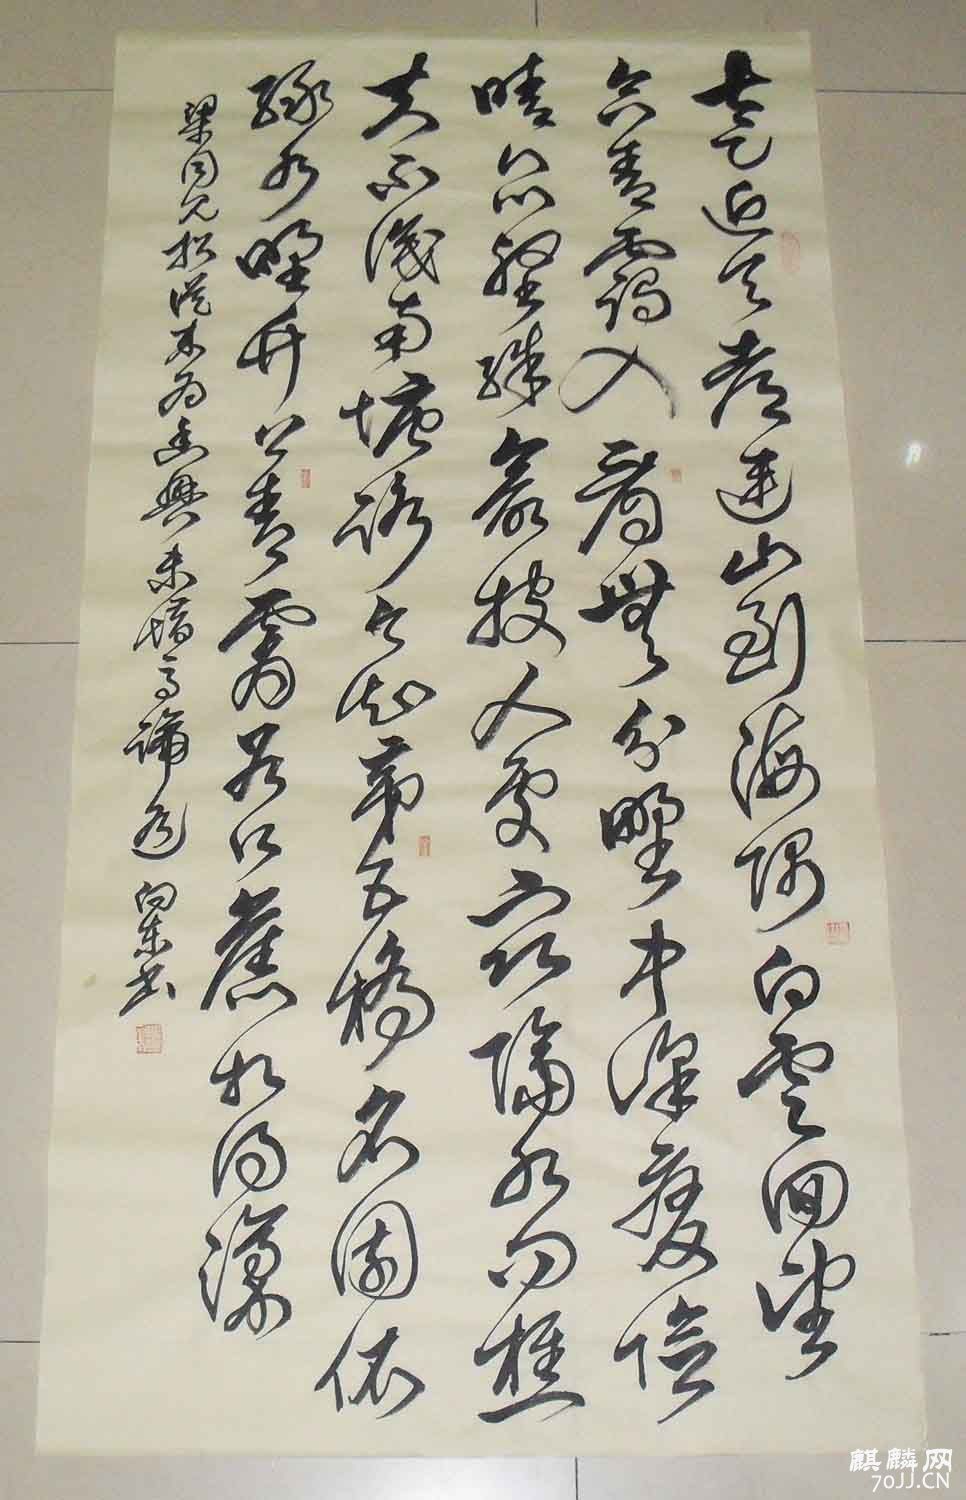 太乙近天都連山到海隅白雲回望
合青靄入看無分野中峰變陰
晴衆壑殊欲投人處宿隔水問樵
夫不識南塘路今知第五橋名園依
綠水野竹上青霄谷口舊相得濠
梁同見招從來為幽興未惜馬蹄遥 向東書
麒麟网
70JJ.CN